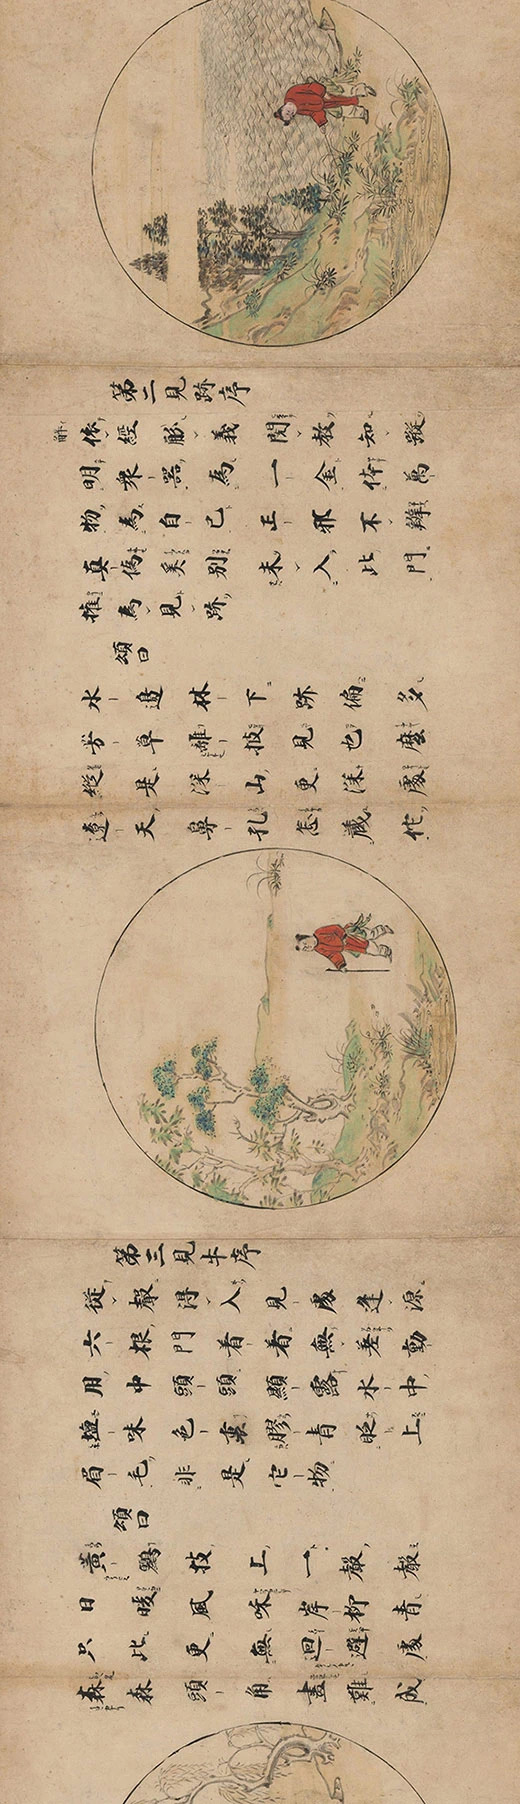 第二見跡序
依經解義閲教知蹤
明衆器為一金体萬
物為自己正邪不辨
真偽奚別未入此門
權為見跡
頌曰
水邉林下跡偏多
芳草離披見也麼
縱是深山更深處
遼天鼻孔怎藏他
第三見牛序
從聲得入見處逢源
六根門着着無差動
用中頭頭顯露水中
塩味色裏膠青眨上
眉毛非是它物
頌曰
黄鸝枝上一聲聲
日暖風和岸柳青
只此更無迴避處
森森頭角畫難成